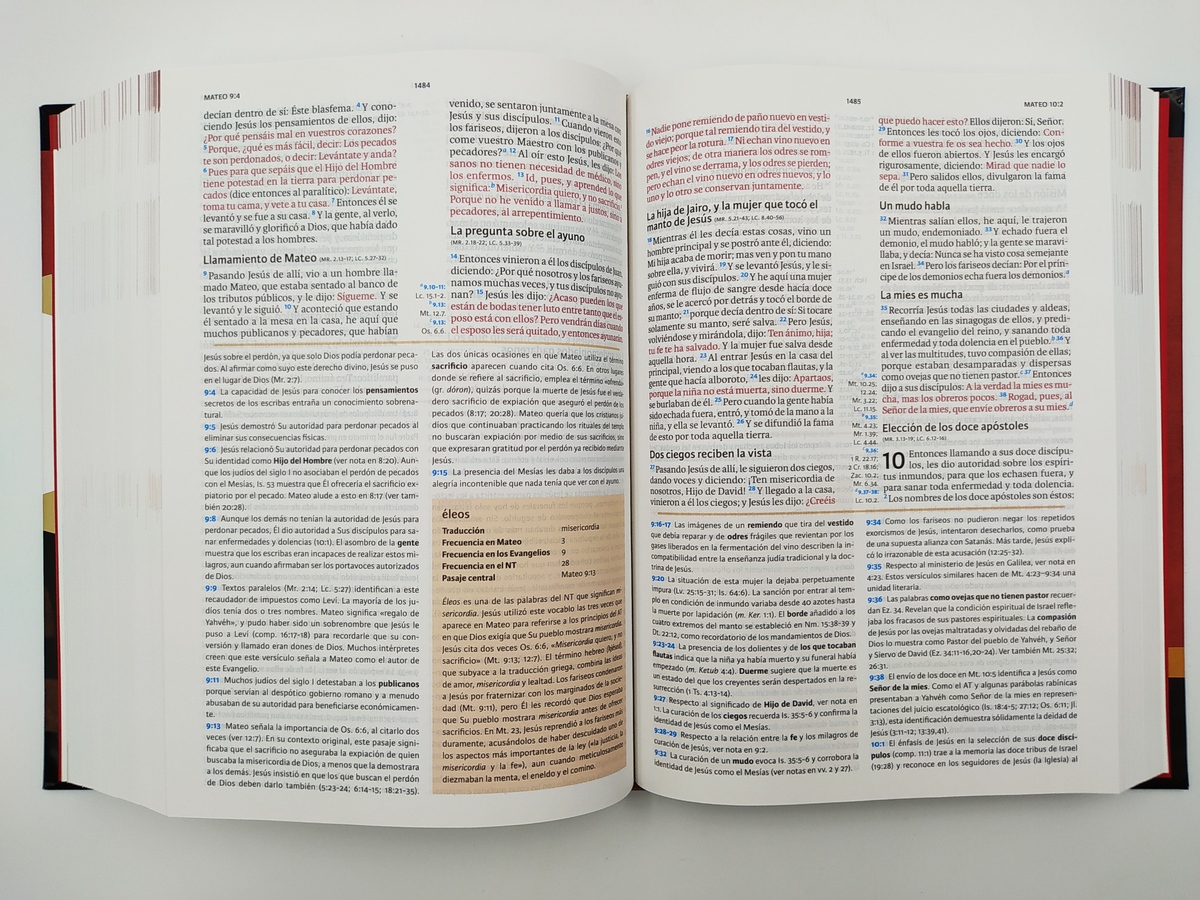 MATEO 9:4
1484
decían dentro de sí: Éste blasfema. 4 Y cono-
ciendo Jesús los pensamientos de ellos, dijo:
¿Por qué pensáis mal en vuestros corazones?
5 Porque, ¿qué es más fácil, decir: Los pecados
te son perdonados, o decir: Levántate y anda?
6 Pues para que sepáis que el Hijo del Hombre
tiene potestad en la tierra para perdonar pe-
cados (dice entonces al paralítico): Levántate,
toma tu cama, y vete a tu casa. 7 Entonces él se
levantó y se fue a su casa. 8 Y la gente, al verlo,
se maravilló y glorificó a Dios, que había dado
tal potestad a los hombres.
Llamamiento de Mateo (MR. 2.13-17; LC. 5.27-32)
9 Pasando Jesús de allí, vio a un hombre lla-
mado Mateo, que estaba sentado al banco de
los tributos públicos, y le dijo: Sígueme. Y se
levantó y le siguió. 10 Y aconteció que estando
él sentado a la mesa en la casa, he aquí que
muchos publicanos y pecadores, que habían
venido, se sentaron juntamente a la mesa con
Jesús y sus discípulos. 11 Cuando vieron esto
los fariseos, dijeron a los discípulos: ¿Por qué
come vuestro Maestro con los publicanos y
pecadores?a 12 Al oír esto Jesús, les dijo: Los
sanos no tienen necesidad de médico, sino
los enfermos. 13 Id, pues, y aprended lo que
significa:b Misericordia quiero, y no sacrificio.
Porque no he venido a llamar a justos, sino a
pecadores, al arrepentimiento.
La pregunta sobre el ayuno
(MR. 2.18-22; LC. 5.33-39)
14 Entonces vinieron a él los discípulos de Juan,
diciendo: ¿Por qué nosotros y los fariseos ayu-
namos muchas veces, y tus discípulos no ayu-
nan? 15 Jesús les dijo: ¿Acaso pueden los que
están de bodas tener luto entre tanto que el es-
poso está con ellos? Pero vendrán días cuando
el esposo les será quitado, y entonces ayunarán.
a 9.10-11:
Lc. 15.1-2.
b 9.13:
Mt. 12.7.
c 9.13:
Os. 6.6.
Jesús sobre el perdón, ya que solo Dios podía perdonar peca-
dos. Al afirmar como suyo este derecho divino, Jesús se puso
en el lugar de Dios (Mr. 2:7).
9:4 La capacidad de Jesús para conocer los pensamientos
secretos de los escribas entraña un conocimiento sobrena-
tural.
9:5 Jesús demostró Su autoridad para perdonar pecados al
eliminar sus consecuencias físicas.
9:6 Jesús relacionó Su autoridad para perdonar pecados con
Su identidad como Hijo del Hombre (ver nota en 8:20). Aun-
que los judíos del siglo I no asociaban el perdón de pecados
con el Mesías, Is. 53 muestra que Él ofrecería el sacrificio ex-
piatorio por el pecado. Mateo alude a esto en 8:17 (ver tam-
bién 20:28).
9:8 Aunque los demás no tenían la autoridad de Jesús para
perdonar pecados, Él dio autoridad a Sus discípulos para sa-
nar enfermedades y dolencias (10:1). El asombro de la gente
muestra que los escribas eran incapaces de realizar estos mi-
lagros, aun cuando afirmaban ser los portavoces autorizados
de Dios.
9:9 Textos paralelos (Mr. 2:14; Lc. 5:27) identifican a este
recaudador de impuestos como Leví. La mayoría de los ju-
díos tenía dos o tres nombres. Mateo significa «regalo de
Yahvéh», y pudo haber sido un sobrenombre que Jesús le
puso a Leví (comp. 16:17-18) para recordarle que su con-
versión y llamado eran dones de Dios. Muchos intérpretes
creen que este versículo señala a Mateo como el autor de
este Evangelio.
9:11 Muchos judíos del siglo I detestaban a los publicanos
porque servían al despótico gobierno romano y a menudo
abusaban de su autoridad para beneficiarse económicamen-
te.
9:13 Mateo señala la importancia de Os. 6:6, al citarlo dos
veces (ver 12:7). En su contexto original, este pasaje signi-
ficaba que el sacrificio no aseguraba la expiación de quien
buscaba la misericordia de Dios, a menos que la demostrara
a los demás. Jesús insistió en que los que buscan el perdón
de Dios deben darlo también (5:23-24; 6:14-15; 18:21-35).
Las dos únicas ocasiones en que Mateo utiliza el término
sacrificio aparecen cuando cita Os. 6:6. En otros lugares
donde se refiere al sacrificio, emplea el término «ofrenda»
(gr. dóron), quizás porque la muerte de Jesús fue el verda-
dero sacrificio de expiación que aseguró el perdón de los
pecados (8:17; 20:28). Mateo quería que los cristianos ju-
díos que continuaban practicando los rituales del templo
no buscaran expiación por medio de sus sacrificios, sino
que expresaran gratitud por el perdón ya recibido mediante
Jesús.
9:15 La presencia del Mesías les daba a los discípulos una
alegría incontenible que nada tenía que ver con el ayuno.
éleos
Traducción misericordia
Frecuencia en Mateo 3
Frecuencia en los Evangelios 9
Frecuencia en el NT 28
Pasaje central Mateo 9:13
Éleos es una de las palabras del NT que significan mi-
sericordia. Jesús utilizó este vocablo las tres veces que
aparece en Mateo para referirse a los principios del AT
en que Dios exigía que Su pueblo mostrara misericordia.
Jesús cita dos veces Os. 6:6, «Misericordia quiero, y no
sacrificio» (Mt. 9:13; 12:7). El término hebreo (kjésed),
que subyace a la traducción griega, combina las ideas
de amor, misericordia y lealtad. Los fariseos condenaron
a Jesús por fraternizar con los marginados de la socie-
dad (Mt. 9:11), pero Él les recordó que Dios esperaba
que Su pueblo mostrara misericordia antes de ofrecer
sacrificios. En Mt. 23, Jesús reprendió a los fariseos más
duramente, acusándolos de haber descuidado uno de
los aspectos más importantes de la ley («la justicia, la
misericordia y la fe»), aun cuando meticulosamente
diezmaban la menta, el eneldo y el comino.
1485
MATEO 10:2
16 Nadie pone remiendo de paño nuevo en vesti-
do viejo; porque tal remiendo tira del vestido, y
se hace peor la rotura. 17 Ni echan vino nuevo en
odres viejos; de otra manera los odres se rom-
pen, y el vino se derrama, y los odres se pierden;
pero echan el vino nuevo en odres nuevos, y lo
uno y lo otro se conservan juntamente.
La hija de Jairo, y la mujer que tocó el
manto de Jesús (MR. 5.21-43; LC. 8.40-56)
18 Mientras él les decía estas cosas, vino un
hombre principal y se postró ante él, diciendo:
Mi hija acaba de morir; mas ven y pon tu mano
sobre ella, y vivirá. 19 Y se levantó Jesús, y le si-
guió con sus discípulos. 20 Y he aquí una mujer
enferma de flujo de sangre desde hacía doce
años, se le acercó por detrás y tocó el borde de
su manto; 21 porque decía dentro de sí: Si tocare
solamente su manto, seré salva. 22 Pero Jesús,
volviéndose y mirándola, dijo: Ten ánimo, hija;
tu fe te ha salvado. Y la mujer fue salva desde
aquella hora. 23 Al entrar Jesús en la casa del
principal, viendo a los que tocaban flautas, y la
gente que hacía alboroto, 24 les dijo: Apartaos,
porque la niña no está muerta, sino duerme. Y
se burlaban de él. 25 Pero cuando la gente había
sido echada fuera, entró, y tomó de la mano a la
niña, y ella se levantó. 26 Y se difundió la fama
de esto por toda aquella tierra.
Dos ciegos reciben la vista
27 Pasando Jesús de allí, le siguieron dos ciegos,
dando voces y diciendo: ¡Ten misericordia de
nosotros, Hijo de David! 28 Y llegado a la casa,
vinieron a él los ciegos; y Jesús les dijo: ¿Creéis
que puedo hacer esto? Ellos dijeron: Sí, Señor.
29 Entonces les tocó los ojos, diciendo: Con-
forme a vuestra fe os sea hecho. 30 Y los ojos
de ellos fueron abiertos. Y Jesús les encargó
rigurosamente, diciendo: Mirad que nadie lo
sepa. 31 Pero salidos ellos, divulgaron la fama
de él por toda aquella tierra.
Un mudo habla
32 Mientras salían ellos, he aquí, le trajeron
un mudo, endemoniado. 33 Y echado fuera el
demonio, el mudo habló; y la gente se maravi-
llaba, y decía: Nunca se ha visto cosa semejante
en Israel. 34 Pero los fariseos decían: Por el prín-
cipe de los demonios echa fuera los demonios.a
La mies es mucha
35 Recorría Jesús todas las ciudades y aldeas,
enseñando en las sinagogas de ellos, y predi-
cando el evangelio del reino, y sanando toda
enfermedad y toda dolencia en el pueblo.b 36 Y
al ver las multitudes, tuvo compasión de ellas;
porque estaban desamparadas y dispersas
como ovejas que no tienen pastor.c 37 Entonces
dijo a sus discípulos: A la verdad la mies es mu-
cha, mas los obreros pocos. 38 Rogad, pues, al
Señor de la mies, que envíe obreros a su mies.d
Elección de los doce apóstoles
(MR. 3.13-19; LC. 6.12-16)
10 Entonces llamando a sus doce discípu-
los, les dio autoridad sobre los espíri-
tus inmundos, para que los echasen fuera, y
para sanar toda enfermedad y toda dolencia.
2 Los nombres de los doce apóstoles son éstos:
a 9.34:
Mt. 10.25;
12.24;
Mr. 3.22;
Lc. 11.15.
b 9.35:
Mt. 4.23;
Mr. 1.39;
Lc. 4.44.
c 9.36:
1 R. 22.17;
2 Cr. 18.16;
Zac. 10.2;
Mr. 6.34.
d 9.37-38:
Lc. 10.2.
9:16-17 Las imágenes de un remiendo que tira del vestido
que debía reparar y de odres frágiles que revientan por los
gases liberados en la fermentación del vino describen la in-
compatibilidad entre la enseñanza judía tradicional y la doc-
trina de Jesús.
9:20 La situación de esta mujer la dejaba perpetuamente
impura (Lv. 25:15-31; Is. 64:6). La sanción por entrar al tem-
plo en condición de inmundo variaba desde 40 azotes hasta
la muerte por lapidación (m. Ker. 1:1). El borde añadido a los
cuatro extremos del manto se estableció en Nm. 15:38-39 y
Dt. 22:12, como recordatorio de los mandamientos de Dios.
9:23-24 La presencia de los dolientes y de los que tocaban
flautas indica que la niña ya había muerto y su funeral había
empezado (m. Ketub 4:4). Duerme sugiere que la muerte es
un estado del que los creyentes serán despertados en la re-
surrección (1 Ts. 4:13-14).
9:27 Respecto al significado de Hijo de David, ver nota en
1:1. La curación de los ciegos recuerda Is. 35:5-6 y confirma la
identidad de Jesús como el Mesías.
9:28-29 Respecto a la relación entre la fe y los milagros de
curación de Jesús, ver nota en 9:2.
9:32 La curación de un mudo evoca Is. 35:5-6 y corrobora la
identidad de Jesús como el Mesías (ver notas en vv. 2 y 27).
9:34 Como los fariseos no pudieron negar los repetidos
exorcismos de Jesús, intentaron desecharlos, como prueba
de una supuesta alianza con Satanás. Más tarde, Jesús explí-
có lo irrazonable de esta acusación (12:25-32).
9:35 Respecto al ministerio de Jesús en Galilea, ver nota en
4:23. Estos versículos similares hacen de Mt. 4:23–9:34 una
unidad literaria.
9:36 Las palabras como ovejas que no tienen pastor recuer-
dan Ez. 34. Revelan que la condición espiritual de Israel refle-
jaba los fracasos de sus pastores espirituales. La compasión
de Jesús por las ovejas maltratadas y olvidadas del rebaño de
Dios muestra como Pastor del pueblo de Yahvéh, y Señor
y Siervo de David (Ez. 34:11-16,20-24). Ver también Mt. 25:32;
26:31.
9:38 El envío de los doce en Mt. 10:5 identifica a Jesús como
Señor de la mies. Como el AT y algunas parábolas rabínicas
presentaban a Yahvéh como Señor de la mies en represen-
taciones del juicio escatológico (Is. 18:4-5; 27:12; Os. 6:11; Jl.
3:13), esta identificación demuestra sólidamente la deidad de
Jesús (3:11-12; 13:39,41).
10:1 El énfasis de Jesús en la selección de sus doce discí-
pulos (comp. 11:1) trae a la memoria las doce tribus de Israel
(19:28) y reconoce en los seguidores de Jesús (la Iglesia) al